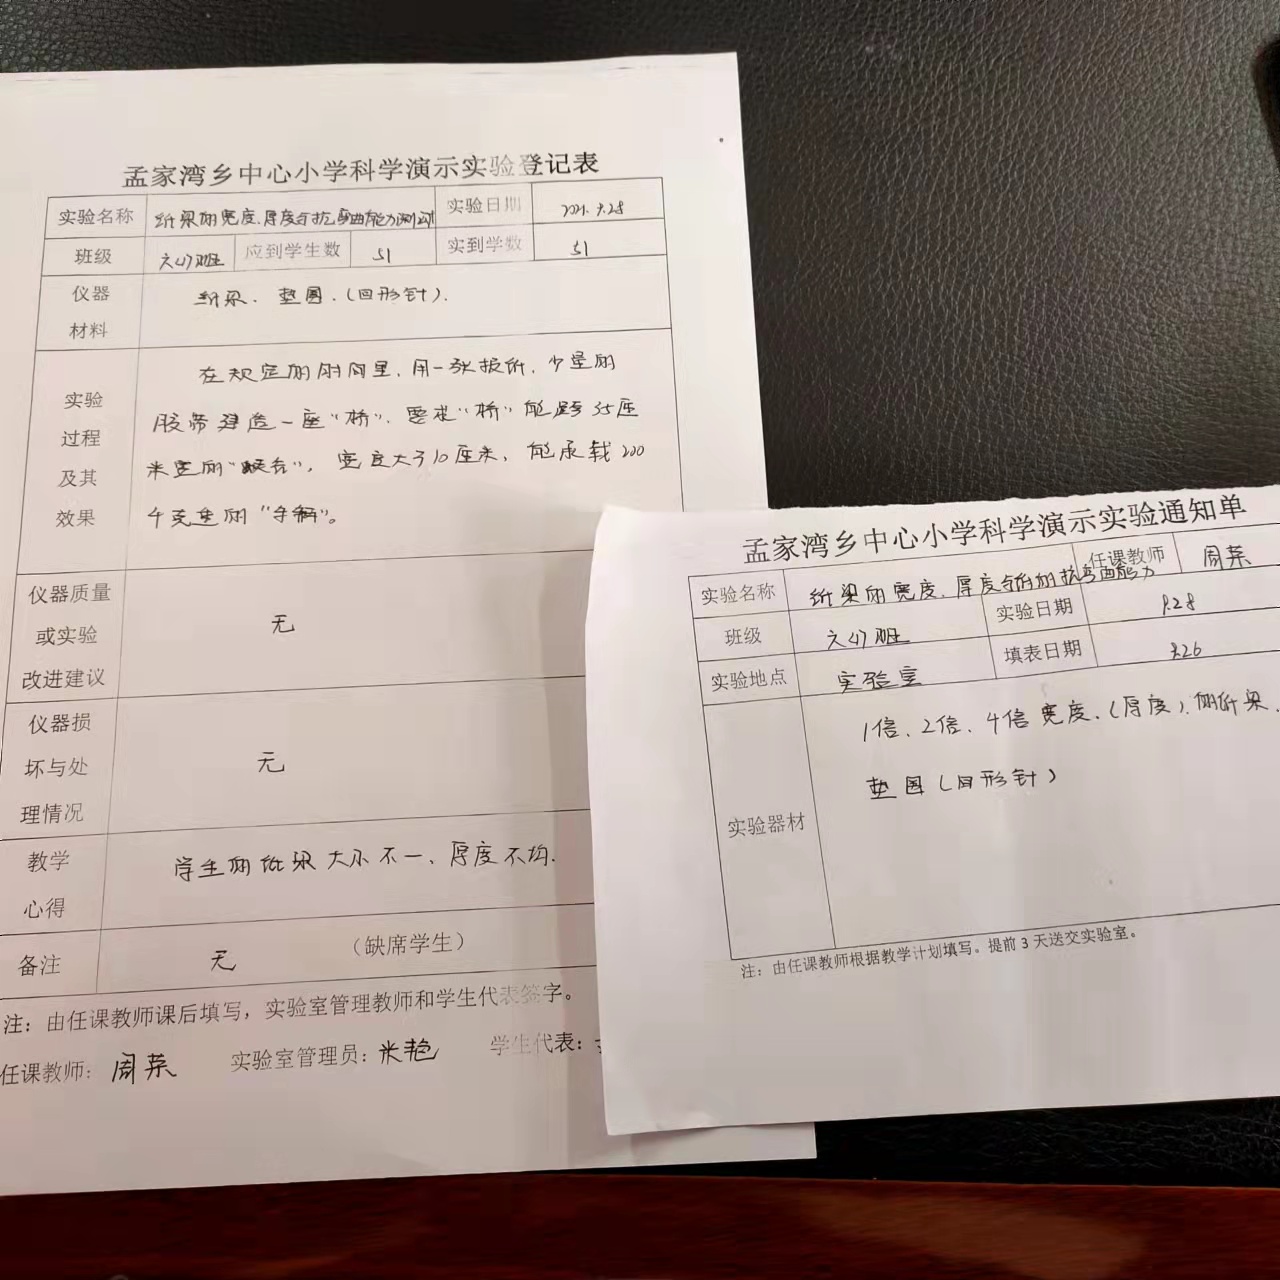 孟家湾乡中心小学科学演示实验登记表
实验名称 纸梁的宽度、厚度与抗弯曲能力测试 实验日期 2021.9.28
班级 六(4)班 应到学生数 51 实到学数 51
仪器材料 纸梁、垫圈、(回形针).
实验过程及其效果
在规定的时间里、用一张报纸、少量的
胶带建造一座“桥”、要求“桥”能跨35厘
米宽的“峡谷”，宽度大于10厘米，能承载200
千克重的“车辆”。
仪器质量或实验改进建议 无
仪器损坏与处理情况 无
教学心得 学生的纸梁大小不一、厚度不均.
备注 无 （缺席学生）
注：由任课教师课后填写，实验室管理教师和学生代表签字。
任课教师： 周荣 实验室管理员：米艳 学生代表：
孟家湾乡中心小学科学演示实验通知单
实验名称 纸梁的宽度、厚度与纸的抗弯曲能力 任课教师 周荣
班级 六(4)班 实验日期 9.28
实验地点 实验室 填表日期 9.26
实验器材
1倍、2倍、4倍宽度、(厚度)、的纸梁、
垫圈(回形针)
注：由任课教师根据教学计划填写。提前3天送交实验室。